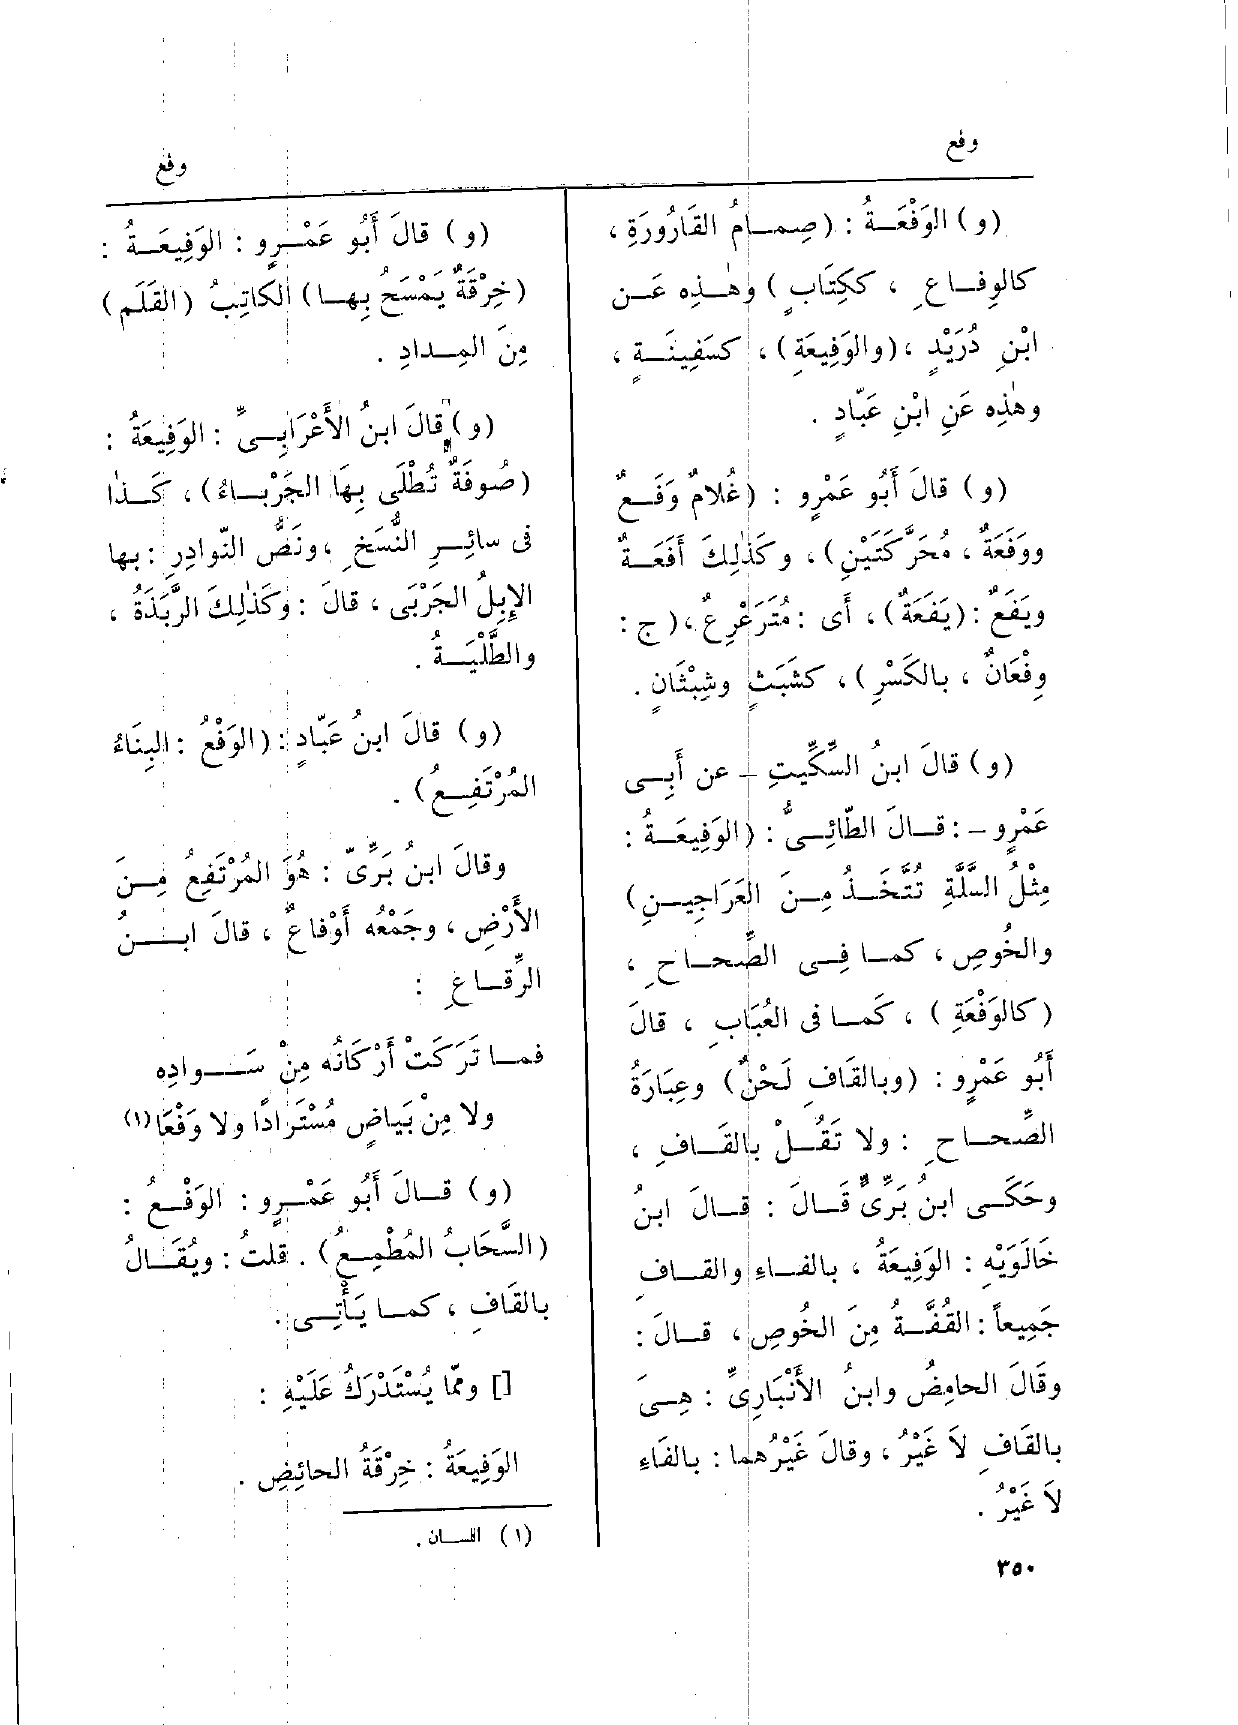 وفع
وفع
(و) الوَفْعَـةُ : (صِمـامُ القَارُورَةِ ،
كالوِفـاعِ ، ككِتَابٍ) وهٰـذِه عَـن
ابْنِ دُرَيْدٍ ، (والوَفِيعَةِ) ، كسَفِينَـةٍ ،
وهٰذِه عَنِ ابْنِ عَبّادٍ .
(و) قالَ أَبُو عَمْرٍو : (غُلامٌ وَفَـعٌ
ووَفَعَةٌ ، مُحَرَّكَتَيْنِ) ، وكَذٰلِكَ أَفَعَـةٌ
ويَفَعٌ : (يَفَعَةٌ) ، أَى : مُتَرَعْرِعٌ ، (ج :
وِفْعَانٌ ، بالكَسْرِ) ، كشَبَثٍ وشِبْثَانٍ .
(و) قالَ ابنُ السِّكِّيتِ – عن أَبِـى
عَمْرٍو – : قـالَ الطّائِـىُّ : (الوَفِيعَـةُ :
مِثْلُ السَّلَّةِ تُتَّخَـذُ مِـنَ العَرَاجِيـنِ)
والخُوصِ ، كمـا فِـى الصِّحـاحِ ،
(كالوَفْعَةِ) ، كَمـا فى العُبَابِ ، قالَ
أَبُو عَمْرٍو : (وبالقَافِ لَحْنٌ) وعِبَارَةُ
الصِّحـاحِ : ولا تَقُـلْ بالقَـافِ ،
وحَكَـى ابنُ بَرِّىٍّ قَـالَ : قـالَ ابنُ
خَالَوَيْهِ : الوَفِيعَةُ ، بالفـاءِ والقـافِ
جَمِيعاً : القُفَّـةُ مِنَ الخُوصِ ، قـالَ :
وقَالَ الحامِضُ وابنُ الأَنْبَارِىِّ : هِـىَ
بالقَافِ لاَ غَيْرُ ، وقالَ غَيْرُهما : بالفَاءِ
لاَ غَيْرُ .
(و) قالَ أَبُو عَمْـرٍو : الوَفِيعَـةُ :
(خِرْقَةٌ يَمْسَحُ بِهـا) الكاتِبُ (القَلَم)
مِنَ المِـدادِ .
(و) قالَ ابنُ الأَعْرَابِـىِّ : الوَفِيعَةُ :
(صُوفَةٌ تُطْلَى بِهَا الجَرْبـاءُ) ، كَـذا
فى سائِـرِ النُّسَخِ ، ونَصُّ النَّوادِرِ : بها
الإِبِلُ الجَرْبَى ، قالَ : وكَذٰلِكَ الرَّبَذَةُ ،
والطَّلْيَـةُ .
(و) قالَ ابنُ عَبّادٍ : (الوَفْعُ : البِنَاءُ
المُرْتَفِـعُ) .
وقالَ ابنُ بَرِّىّ : هُوَ المُرْتَفِعُ مِـنَ
الأَرْضِ ، وجَمْعُه أَوْفاعٌ ، قالَ ابـنُ
الرِّقـاعِ :
فمـا تَرَكَتْ أَرْكَانُه مِنْ سَـوادِه
ولا مِنْ بَيَاضٍ مُسْتَرادًا ولا وَفْعَا(١)
(و) قـالَ أَبُو عَمْـرٍو : الوَفْـعُ :
(السَّحَابُ المُطْمِـعُ) . قلتُ : ويُقَـالُ
بالقَافِ ، كمـا يَأْتِـى .
[] وممّا يُسْتَدْرَكُ عَلَيْهِ :
الوَفِيعَةُ : خِرْقَةُ الحائِضِ .
(١) اللسـان .
٣٥٠